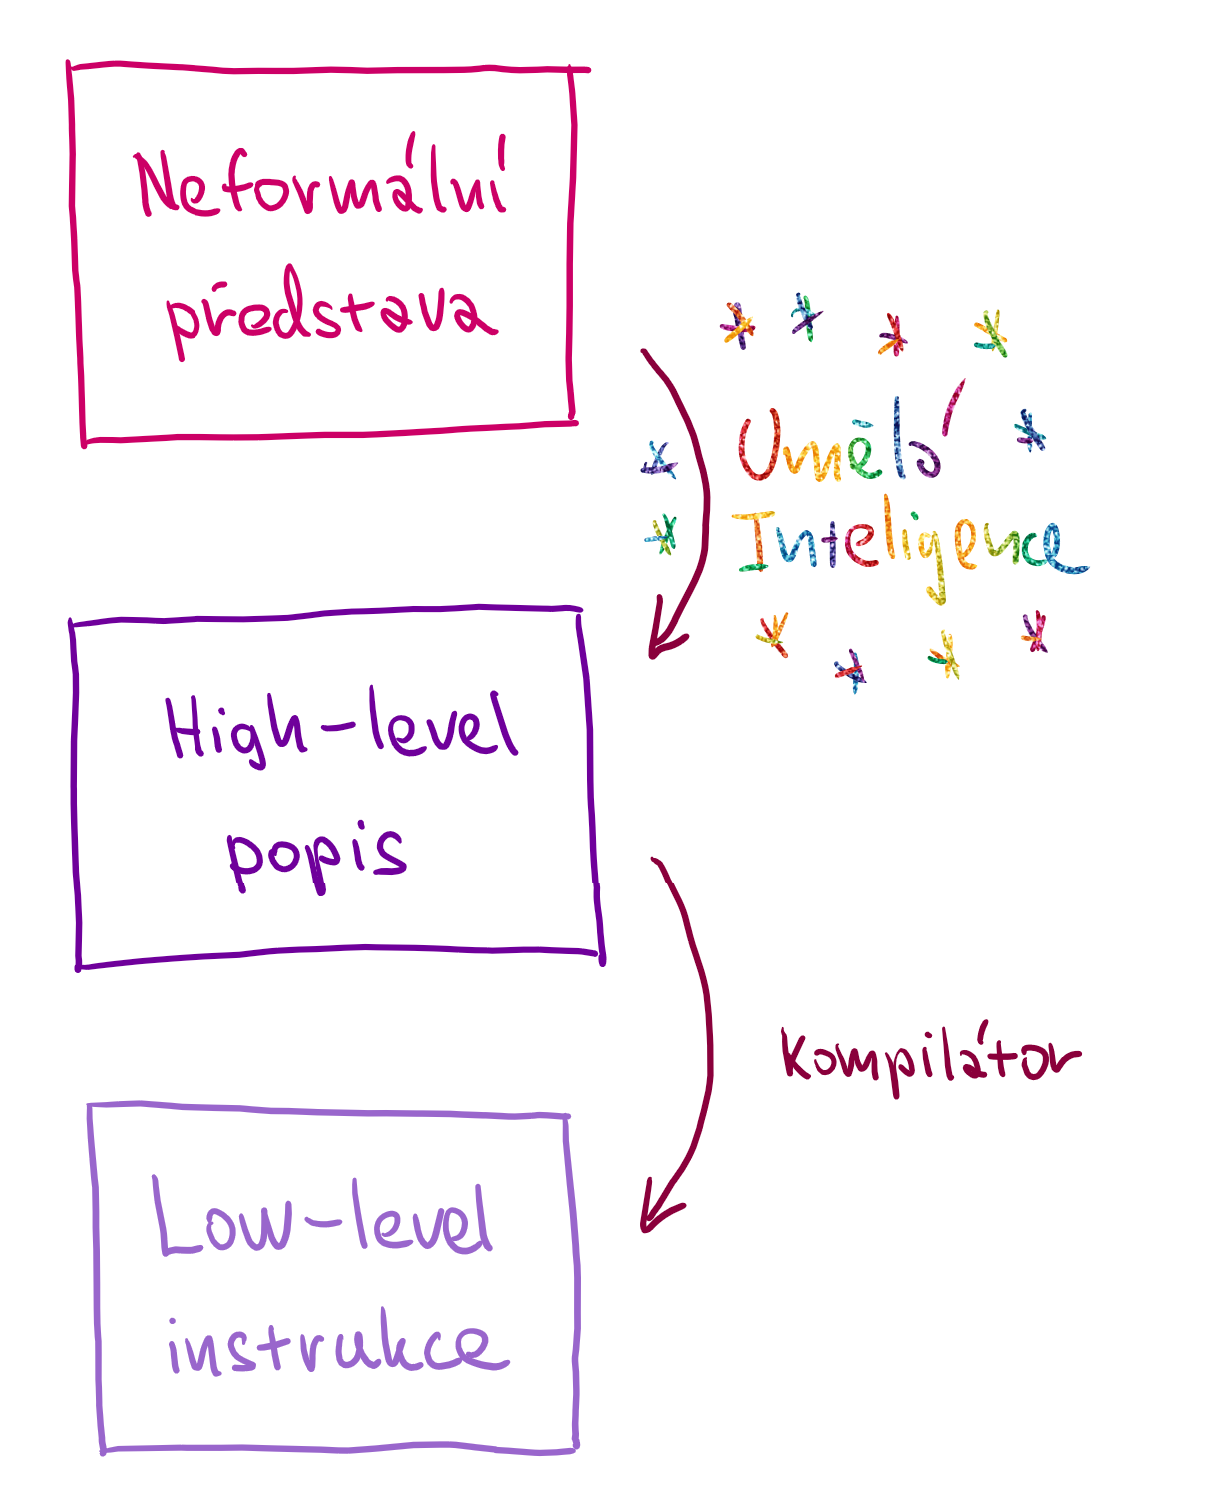 Neformální
představa
Umělá
Inteligence
High-level
popis
Kompilátor
Low-level
instrukce